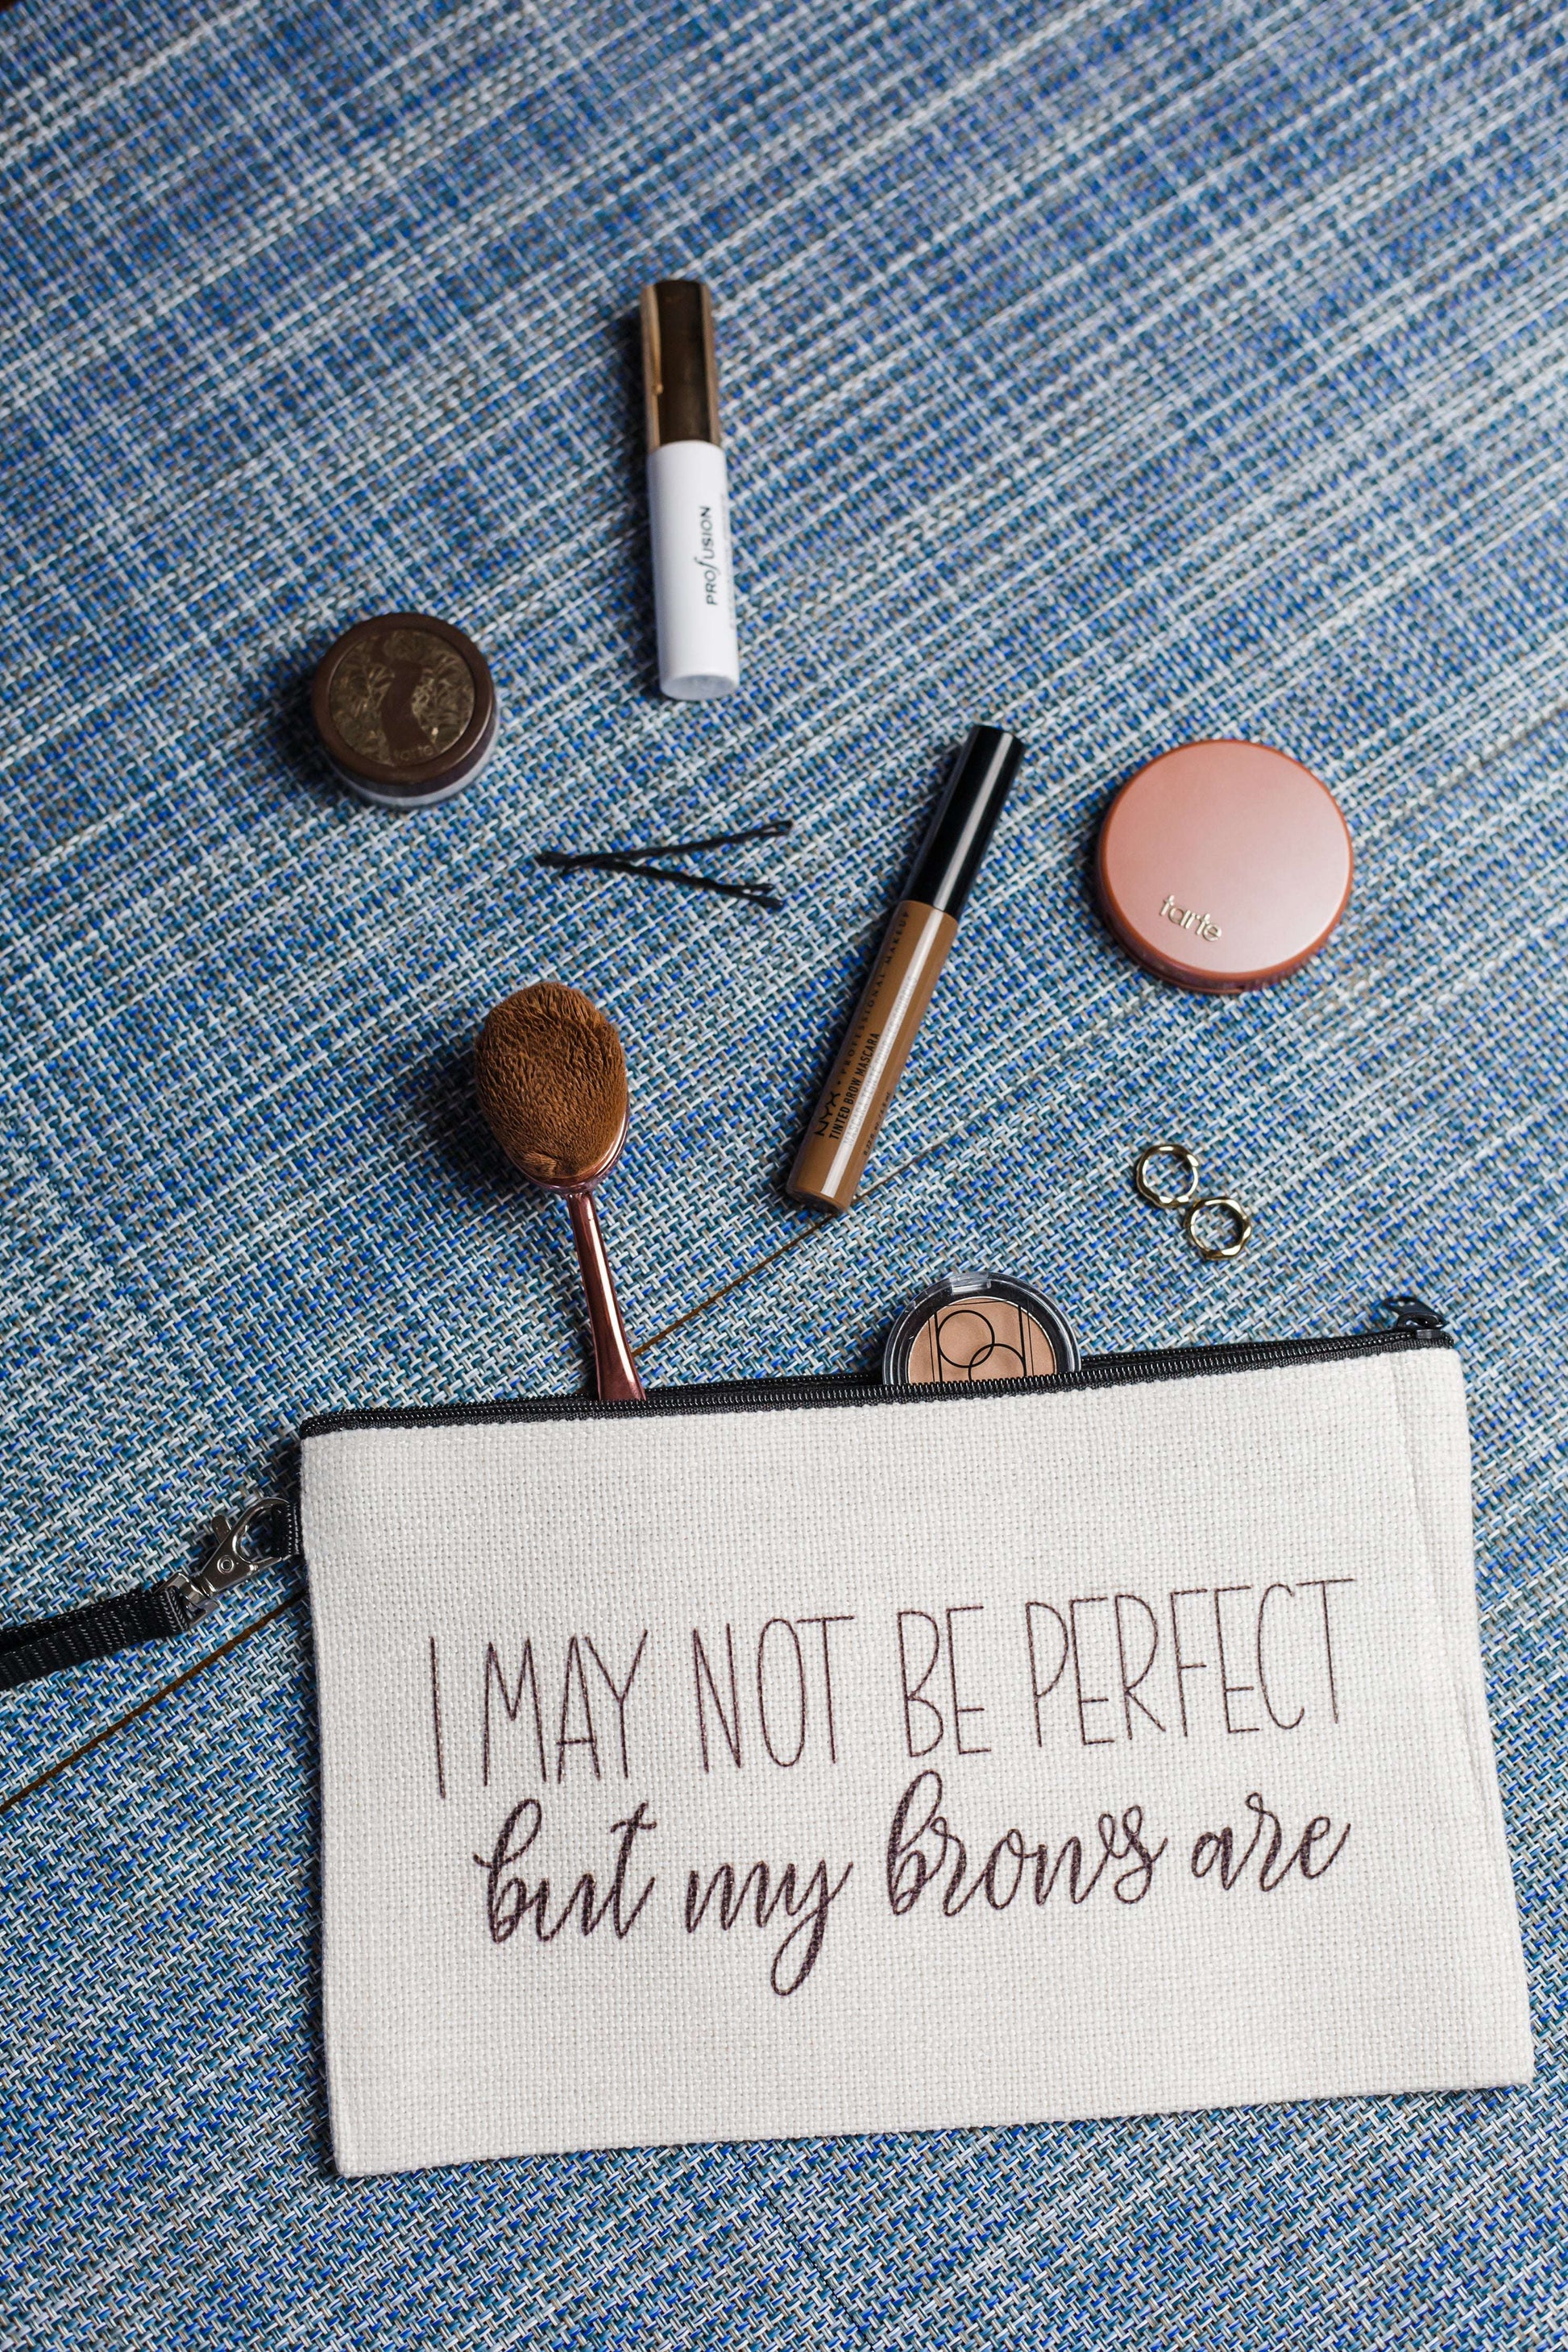 PROfUSION
tarte
tarte
NYX • PROFESSIONAL MAKEUP
TINTED BROW MASCARA
I MAY NOT BE PERFECT
but my brows are